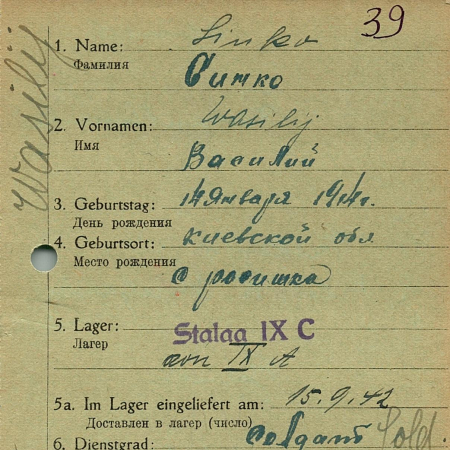 39
Wasilij
1. Name: Sinko
Фамилия Синко
2. Vornamen: Wasilij
Имя Василий
3. Geburtstag: 14 января 19
День рождения
4. Geburtsort: Киевской обл
Место рождения с
5. Lager: Stalag IX C
Лагерь von IX A
5a. Im Lager eingeliefert am: 15.9.42
Доставлен в лагерь (число)
6. Dienstgrad: Soldant Sold.